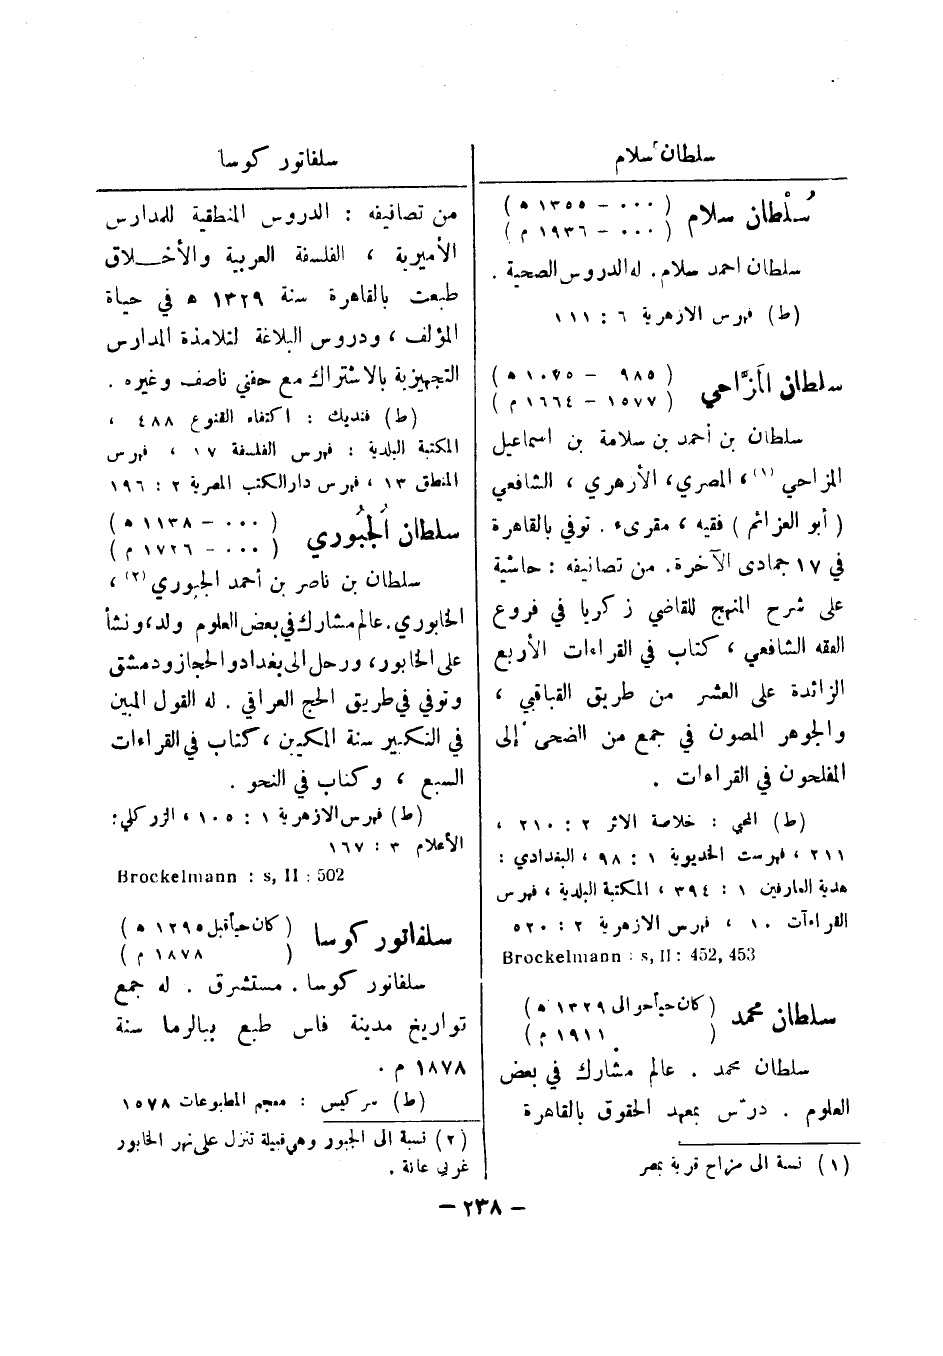 سلطان سلام
سُلْطان سلام
( ٠٠٠ – ١٣٥٥ ه )
( ٠٠٠ – ١٩٣٦ م )
سلطان احمد سلام. له الدروس الصحية .
(ط) فهرس الازهرية ٦ : ١١١
سلطان المَزَّاحي
( ٩٨٥ – ١٠٧٥ ه )
( ١٥٧٧ – ١٦٦٤ م )
سلطان بن أحمد بن سلامة بن اسماعيل
المزاحي (١)، المصري، الأزهري ، الشافعي
( أبو العزائم ) فقيه ، مقرىء . توفي بالقاهرة
في ١٧ جمادى الآخرة. من تصانيفه : حاشية
على شرح المنهج للقاضي زكريا في فروع
الفقه الشافعي ، كتاب في القراءات الأربع
الزائدة على العشر من طريق القباقبي ،
والجوهر المصون في جمع من الضحى إلى
المفلحون في القراءات .
(ط) المحبي : خلاصة الاثر ٢ : ٢١٠ ،
٢١١ ، فهرست الخديوية ١ : ٩٨ ، البغدادي :
هدية العارفين ١ : ٣٩٤ ، المكتبة البلدية ، فهرس
القراءآت ١٠ ، فهرس الازهرية ٢ : ٥٢٠
Brockelmann : s, II : 452, 453
سلطان محمد
(كان حياً حوالى ١٣٢٩ ه )
( ١٩١١ م )
سلطان محمد . عالم مشارك في بعض
العلوم . درّس بمعهد الحقوق بالقاهرة
(١) نسة الى مزاح قرية بمصر
سلفاتور كوسا
من تصانيفه : الدروس المنطقية للمدارس
الأميرية ، الفلسفة العربية والأخلاق
طبعت بالقاهرة سنة ١٣٢٩ ه في حياة
المؤلف ، ودروس البلاغة لتلامذة المدارس
التجهيزية بالاشتراك مع حفني ناصف وغيره .
(ط) فنديك : اكتفاء القنوع ٤٨٨ ،
المكتبة البلدية : فهرس الفلسفة ١٧ ، فهرس
المنطق ١٣ ، فهرس دار الكتب المصرية ٢ : ١٩٦
سلطان الجُبُوري
( ٠٠٠ – ١١٣٨ ه )
( ٠٠٠ – ١٧٢٦ م )
سلطان بن ناصر بن أحمد الجبوري (٢) ،
الخابوري. عالم مشارك في بعض العلوم ولد، ونشأ
على الخابور، ورحل الى بغداد والحجاز ودمشق
وتوفي في طريق الحج العراقي . له القول المبين
في التكبير سنة المكيين ، كتاب في القراءات
السبع ، وكتاب في النحو .
(ط) فهرس الازهرية ١ : ١٠٥ ، الزركلي :
الأعلام ٣ : ١٦٧
Brockelmann : s, II : 502
سلفاتور كوسا
(كان حياً قبل ١٢٩٥ ه )
( ١٨٧٨ م )
سلفاتور كوسا . مستشرق . له جمع
تواريخ مدينة فاس طبع ببالرما سنة
١٨٧٨ م .
(ط) سركيس : معجم المطبوعات ١٥٧٨
(٢) نسبة الى الجبور وهي قبيلة تنزل على نهر الخابور
غربي عانة .
– ٢٣٨ –